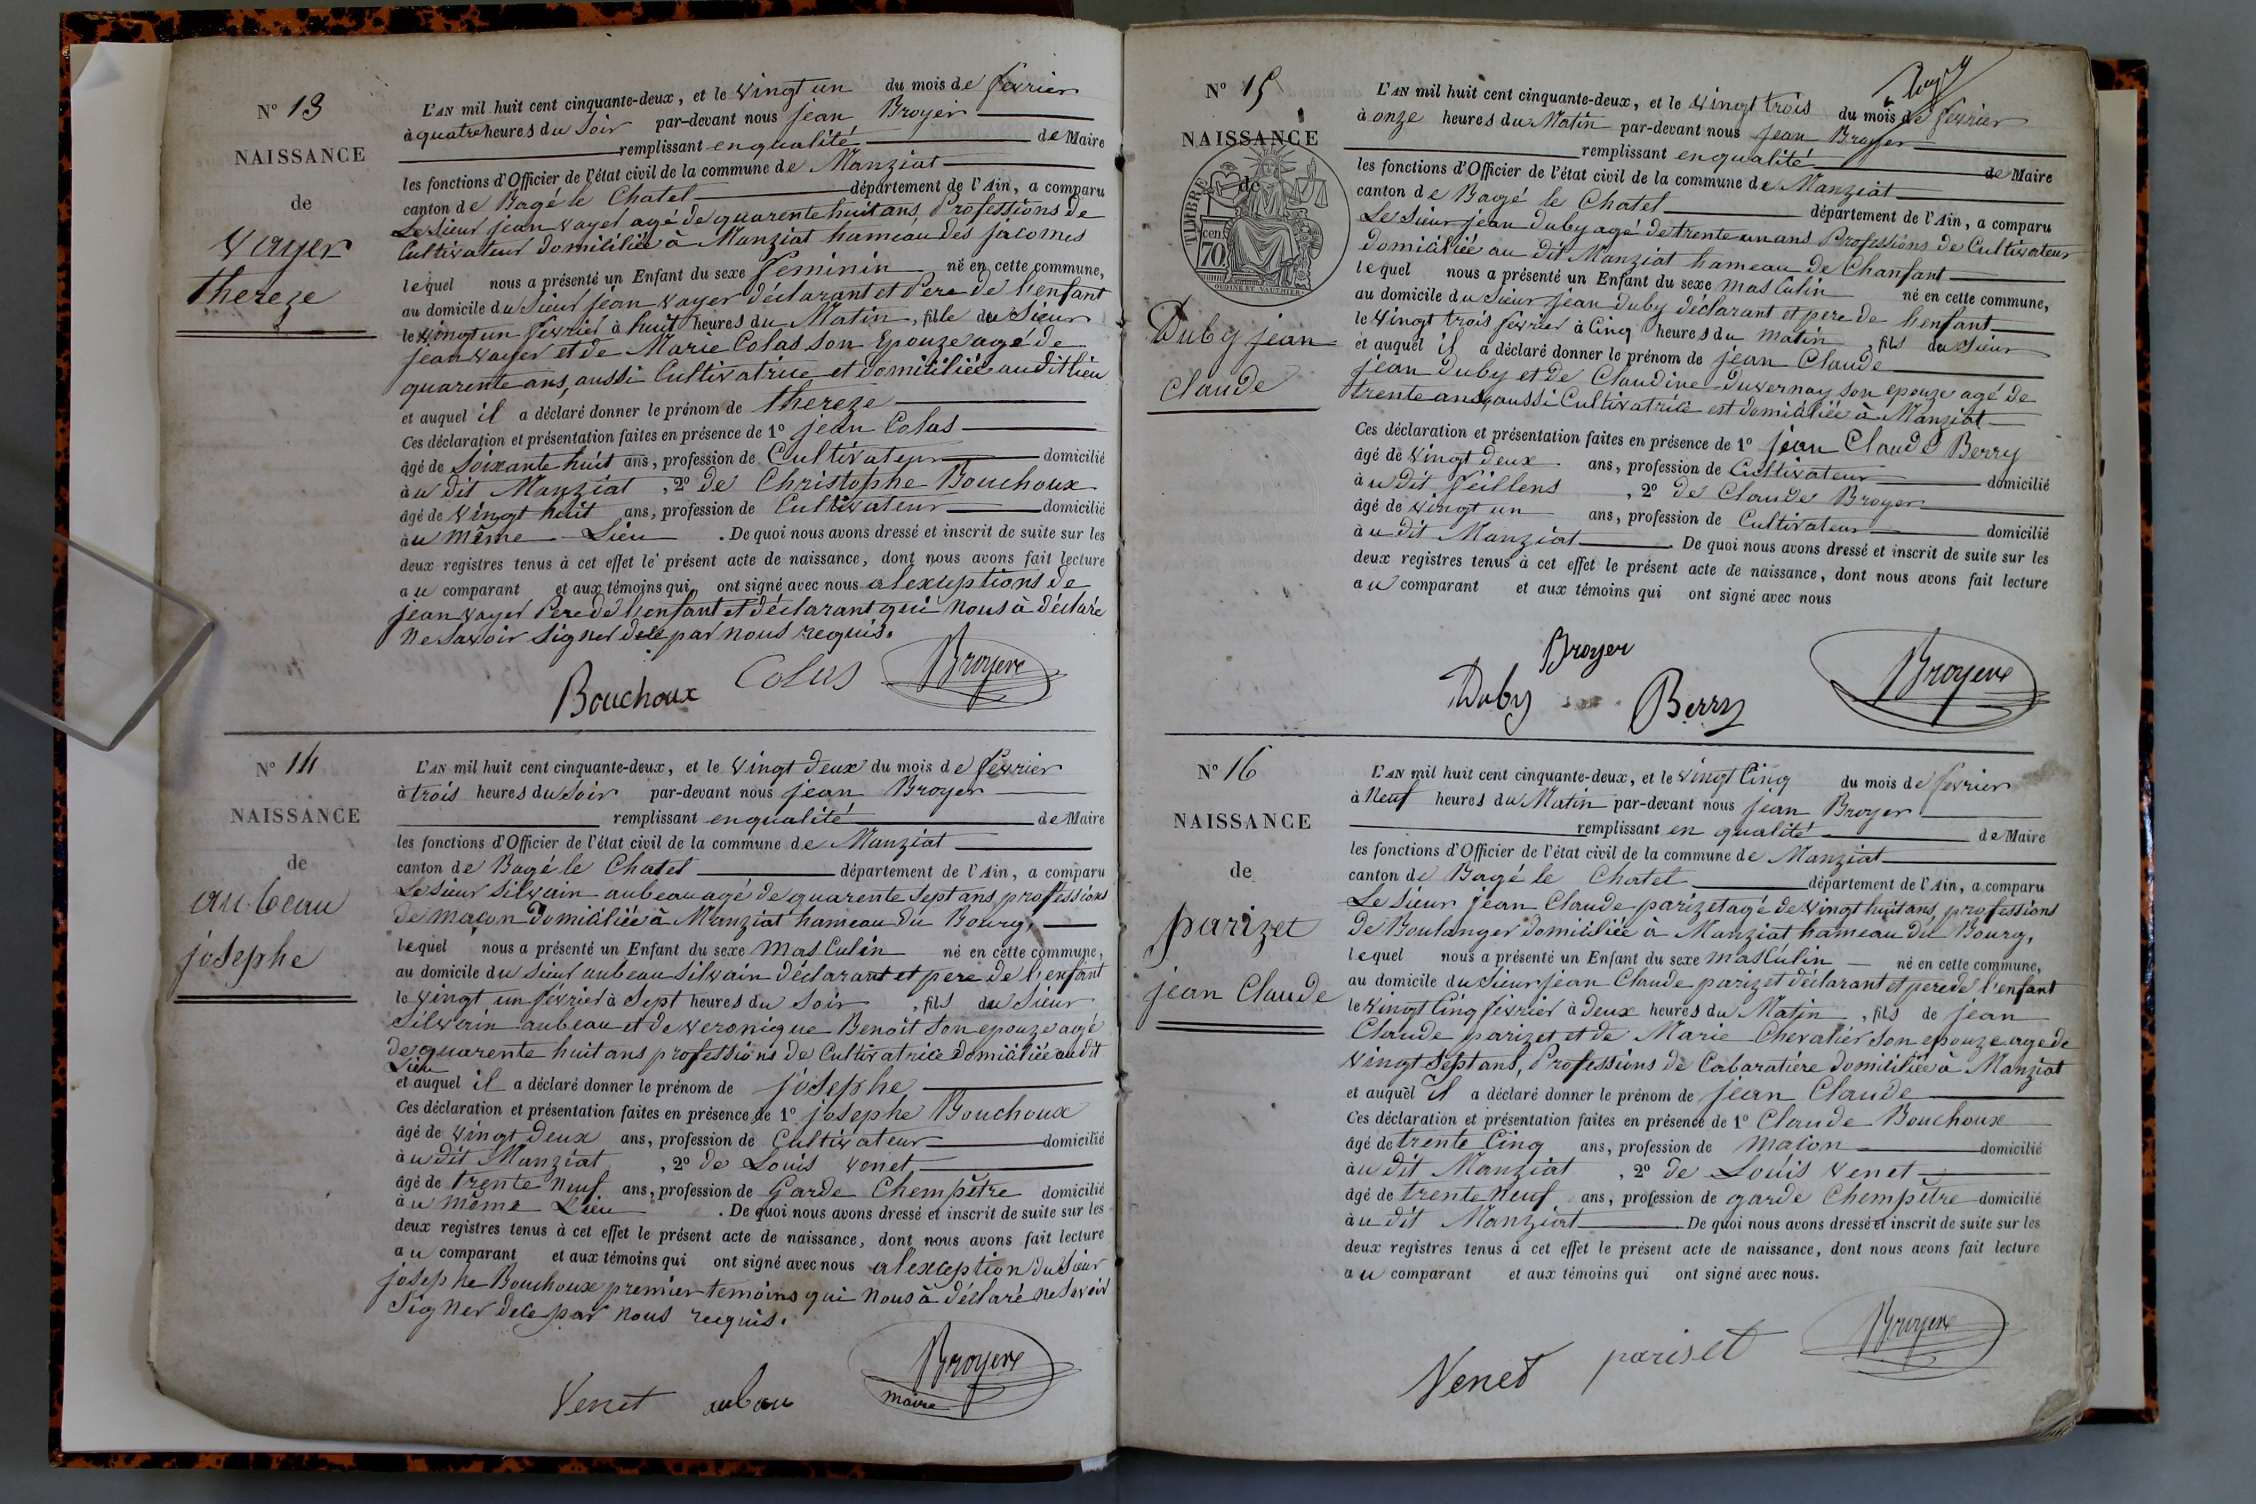 N° 13
NAISSANCE
de
Vayer
thereze
L'AN mil huit cent cinquante-deux, et le vingt un du mois de fevrier
à quatre heures du Soir par-devant nous jean Broyer
remplissant enqualité de Maire
les fonctions d'Officier de l'état civil de la commune de Manziat
canton de Bagé le Chatel département de l'Ain, a comparu
Le Sieur jean vayer agé de quarente huit ans, Professions de
Cultivateur domiciliée à Manziat hameau des jacomes
lequel nous a présenté un Enfant du sexe feminin né en cette commune,
au domicile du Sieur jean vayer déclarant et Pere de l'enfant
le vingt un fevrier à huit heures du Matin, fille du Sieur
jean vayer et de Marie Colas son Epouze agé de
quarente ans, aussi Cultivatrice et domiciliée au dit lieu
et auquel il a déclaré donner le prénom de thereze
Ces déclaration et présentation faites en présence de 1° jean Colas
âgé de Soixante huit ans, profession de Cultivateur domicilié
à u dit Manziat, 2° de Christophe Bouchoux
âgé de vingt huit ans, profession de Cultivateur domicilié
à u même Lieu. De quoi nous avons dressé et inscrit de suite sur les
deux registres tenus à cet effet le présent acte de naissance, dont nous avons fait lecture
au comparant et aux témoins qui ont signé avec nous alexceptions de
jean vayer Pere de l'enfant et déclarant qui nous à déclaré
ne Savoir Signer dece par nous requis.
Bouchoux Colas Broyer
N° 14
NAISSANCE
de
aubeau
josephe
L'AN mil huit cent cinquante-deux, et le vingt deux du mois de fevrier
à trois heures du Soir par-devant nous jean Broyer
remplissant enqualité de Maire
les fonctions d'Officier de l'état civil de la commune de Manziat
canton de Bagé le Chatel département de l'Ain, a comparu
Le Sieur Silvain aubeau agé de quarente Sept ans, professions
de Macon Domiciliée à Manziat hameau du Bourg,
lequel nous a présenté un Enfant du sexe masculin né en cette commune,
au domicile du Sieur aubeau Silvain déclarant et pere de l'enfant
le vingt un fevrier à Sept heures du Soir, fils du Sieur
Silvain aubeau et de veronique Benoit Son epouze agé
de quarente huit ans professions de Cultivatrice domiciliée au dit
Lieu
et auquel il a déclaré donner le prénom de josephe
Ces déclaration et présentation faites en présence de 1° josephe Bouchoux
âgé de vingt deux ans, profession de Cultivateur domicilié
à u dit Manziat, 2° de Louis venet
âgé de trente neuf ans, profession de Garde Chempêtre domicilié
à u même Lieu. De quoi nous avons dressé et inscrit de suite sur les
deux registres tenus à cet effet le présent acte de naissance, dont nous avons fait lecture
au comparant et aux témoins qui ont signé avec nous alexception du Sieur
josephe Bouchoux premier temoins qui nous à déclaré ne Savoir
Signer dece par nous requis.
Venet aubau Broyer
maire
N° 15
NAISSANCE
de
TIMBRE
cen
70
Duby jean
claude
L'AN mil huit cent cinquante-deux, et le vingt trois du mois de fevrier
à onze heures du Matin par-devant nous jean Broyer
remplissant enqualité de Maire
les fonctions d'Officier de l'état civil de la commune de Manziat
canton de Bagé le Chatel département de l'Ain, a comparu
Le Sieur jean duby agé de trente un ans Professions de Cultivateur
domiciliée au dit Manziat hameau de Chanfant
lequel nous a présenté un Enfant du sexe masculin né en cette commune,
au domicile du Sieur jean duby déclarant et pere de l'enfant
le vingt trois fevrier à Cinq heures du matin, fils du Sieur
et auquel il a déclaré donner le prénom de jean Claude
jean duby et de Claudine duvernay son epouze agé de
trente ans, aussi Cultivatrice est domiciliée à Manziat
Ces déclaration et présentation faites en présence de 1° jean Claude Berry
âgé de vingt deux ans, profession de Cultivateur domicilié
à u dit Feillens, 2° de Claude Broyer
âgé de vingt un ans, profession de Cultivateur domicilié
à u dit Manziat. De quoi nous avons dressé et inscrit de suite sur les
deux registres tenus à cet effet le présent acte de naissance, dont nous avons fait lecture
au comparant et aux témoins qui ont signé avec nous
Broyer
Duby Berry Broyer
N° 16
NAISSANCE
de
parizet
jean Claude
L'AN mil huit cent cinquante-deux, et le vingt Cinq du mois de fevrier
à Neuf heures du Matin par-devant nous jean Broyer
remplissant en qualité de Maire
les fonctions d'Officier de l'état civil de la commune de Manziat
canton de Bagé le Chatel département de l'Ain, a comparu
Le Sieur jean Claude parizet agé de vingt huit ans, professions
de Boulanger domiciliée à Manziat hameau du Bourg,
lequel nous a présenté un Enfant du sexe masculin né en cette commune,
au domicile du Sieur jean Claude parizet déclarant et pere de l'enfant
le vingt Cinq fevrier à deux heures du Matin, fils de jean
Claude parizet et de Marie Chevalier son epouze age de
vingt Sept ans, Professions de Cabaratière domiciliée à Manziat
et auquel il a déclaré donner le prénom de jean Claude
Ces déclaration et présentation faites en présence de 1° Claude Bouchoux
âgé de trente Cinq ans, profession de macon domicilié
à u dit Manziat, 2° de Louis venet
âgé de trente Neuf ans, profession de garde Chempêtre domicilié
à u dit Manziat. De quoi nous avons dressé et inscrit de suite sur les
deux registres tenus à cet effet le présent acte de naissance, dont nous avons fait lecture
au comparant et aux témoins qui ont signé avec nous.
Venet pariset Broyer